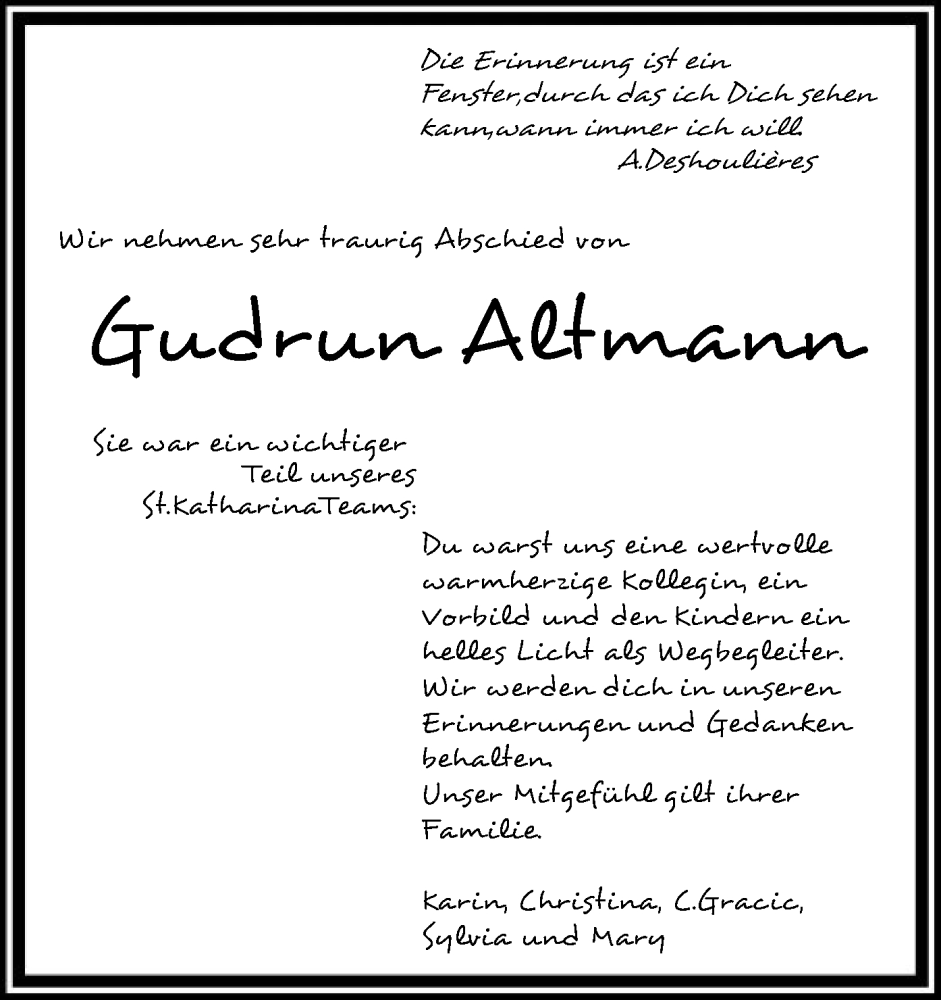 Die Erinnerung ist ein
Fenster,durch das ich Dich sehen
kann,wann immer ich will.
A.Deshoulières
Wir nehmen sehr traurig Abschied von
Gudrun Altmann
Sie war ein wichtiger
Teil unseres
St.KatharinaTeams:
Du warst uns eine wertvolle
warmherzige Kollegin, ein
Vorbild und den Kindern ein
helles Licht als Wegbegleiter.
Wir werden dich in unseren
Erinnerungen und Gedanken
behalten.
Unser Mitgefühl gilt ihrer
Familie.
Karin, Christina, C.Gracic,
Sylvia und Mary